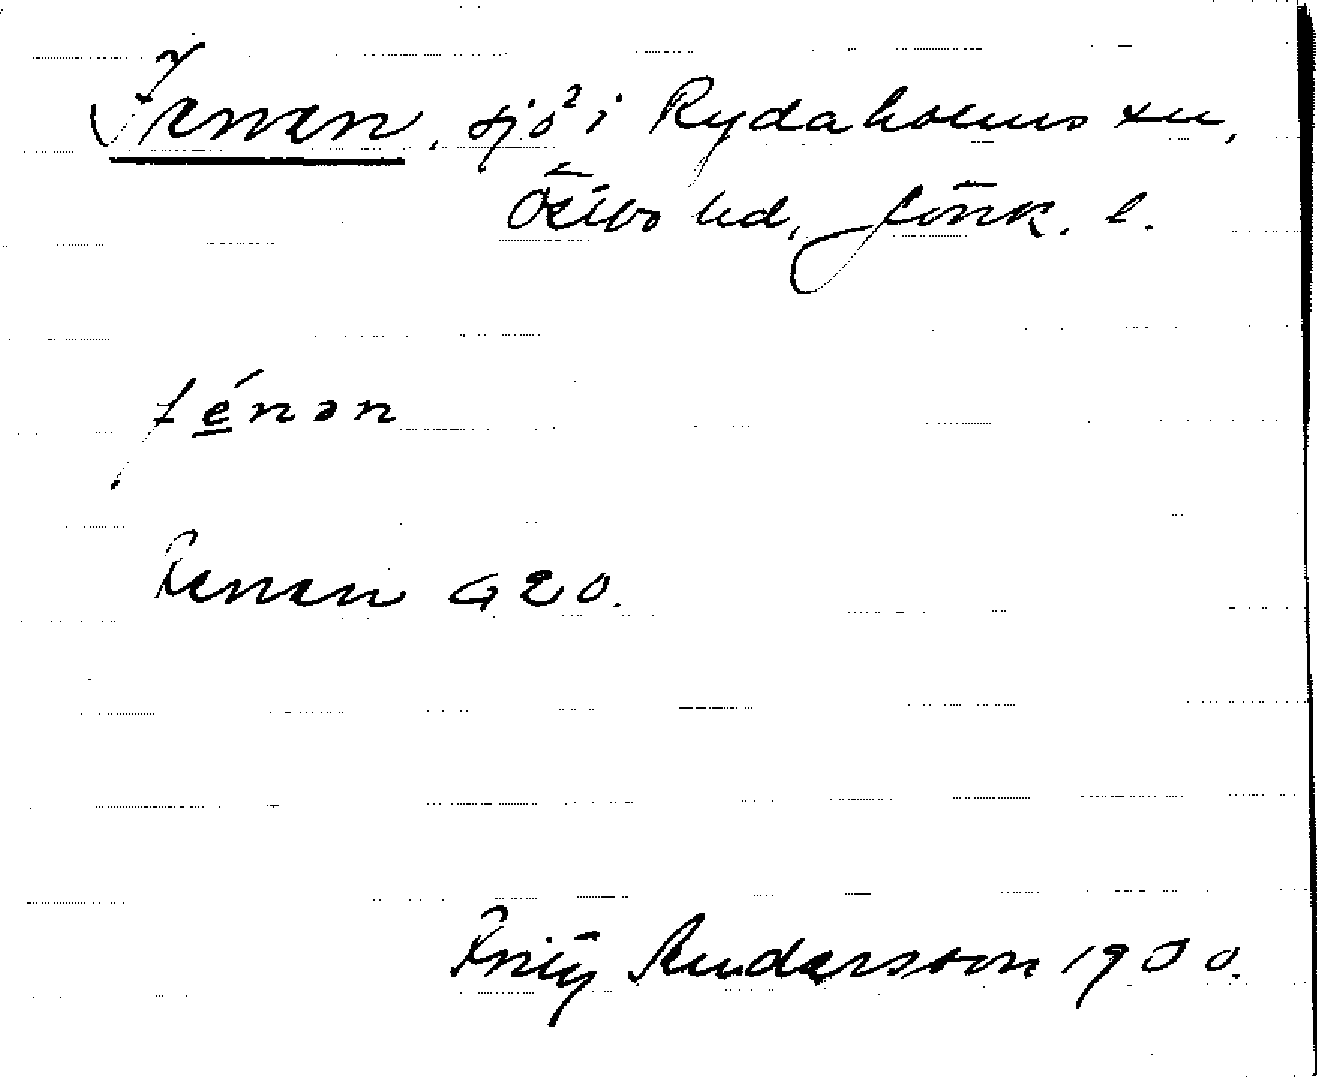 Fenen, sjö i Rydaholms sn,
Östbo hd, Jönk. l.
fénən
Fenen G 20.
Fritz Andersson 1900.